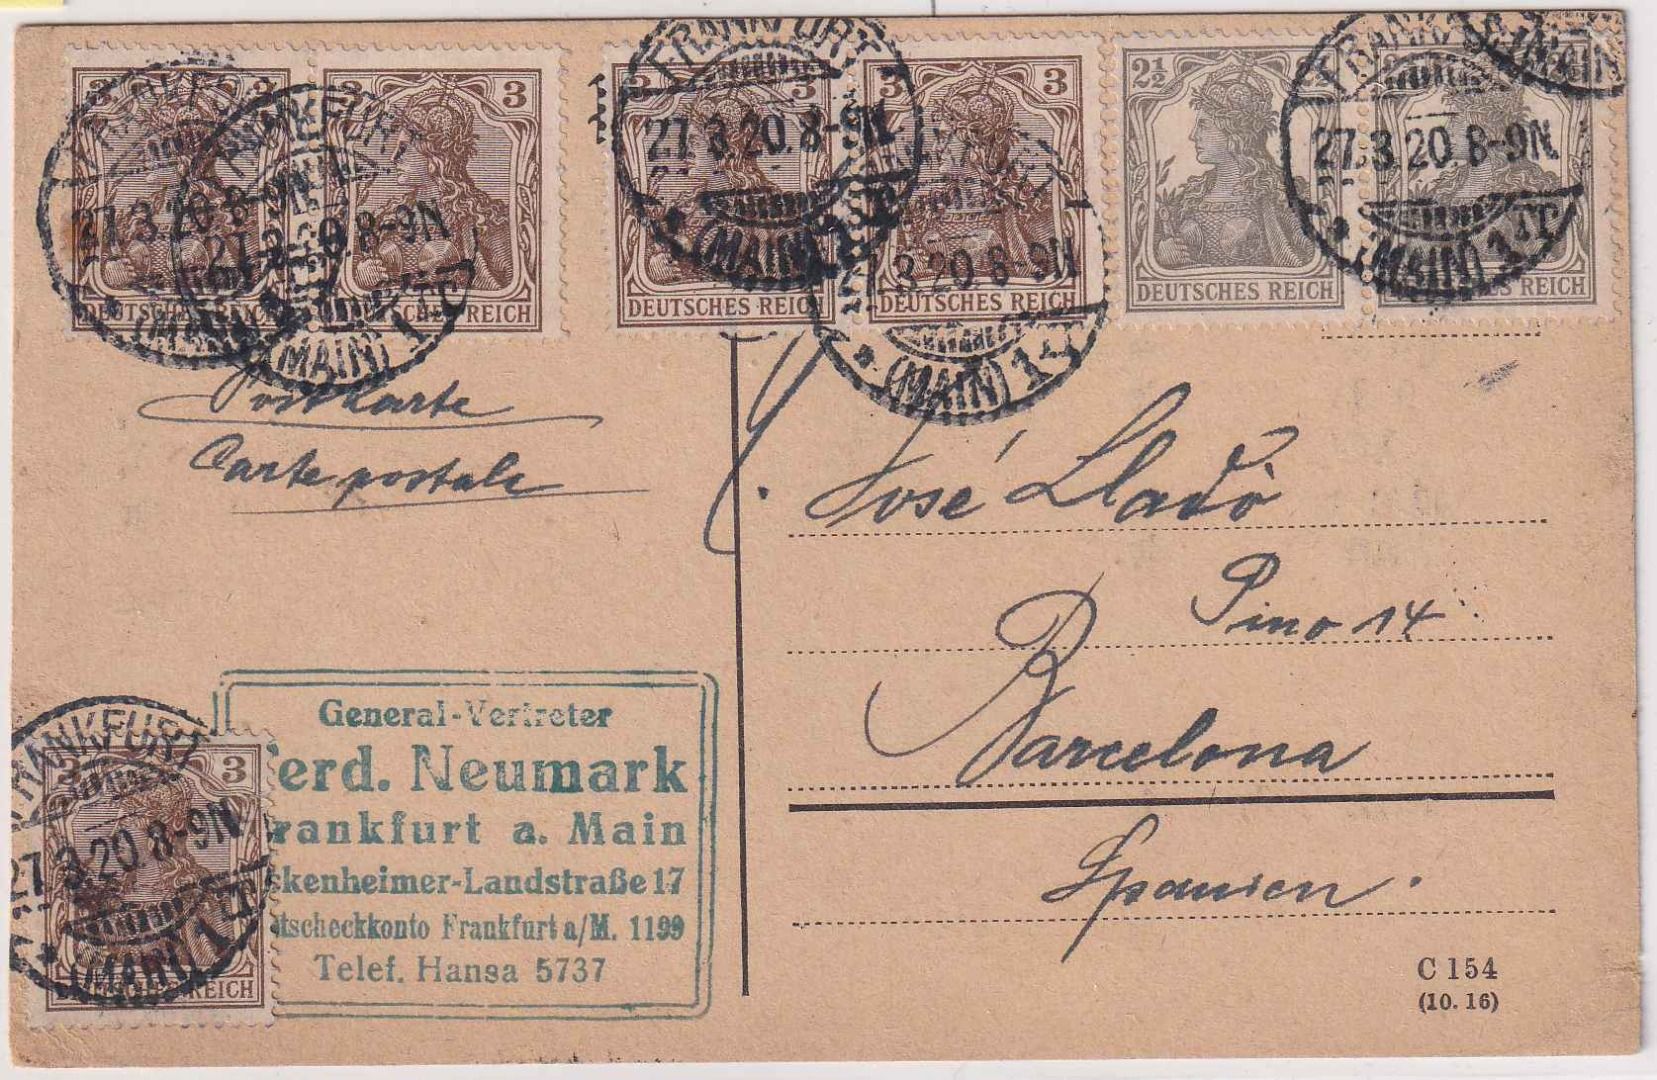 3 3 3 3 2½ 2
DEUTSCHES REICH DEUTSCHES REICH DEUTSCHES REICH DEUTSCHES REICH DEUTSCHES REICH REICH
FRANKFURT 27.3.20.8-9N. * (MAIN) 1
FRANKFURT 27.3.20.8-9N * (MAIN) 1
FRANKFURT 27.3.20.8-9N * (MAIN) 1
FRANKFURT 27.3.20.8-9N * (MAIN) 1
FRANKFURT 27.3.20.8-9N. * (MAIN) 1
(MAIN)
Postkarte
Carte postale
José Lladó
Pino 14
Barcelona
Spanien.
General-Vertreter
erd. Neumark
rankfurt a. Main
ckenheimer-Landstraße 17
tscheckkonto Frankfurt a/M. 1199
Telef. Hansa 5737
3 3
DEUTSCHES REICH
FRANKFURT 27.3.20.8-9N * (MAIN) 1
C 154
(10. 16)